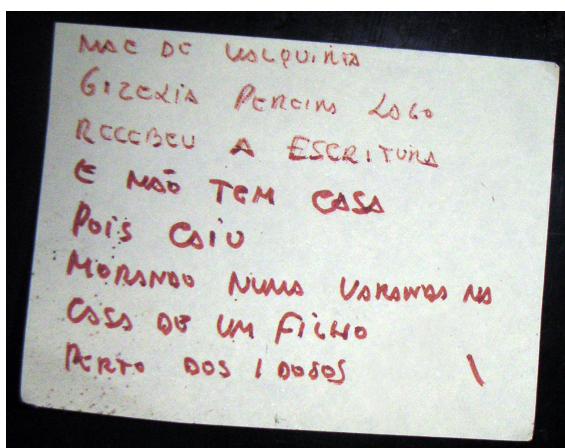 MAE DE VALQUIRIA
GIZEXIA PEREIRA LAGO
RECEBEU A ESCRITURA
E NÃO TEM CASA
POIS CAIU
MORANDO NUMA VARANDA NA
CASA DE UM FILHO
PERTO DOS IDOSOS